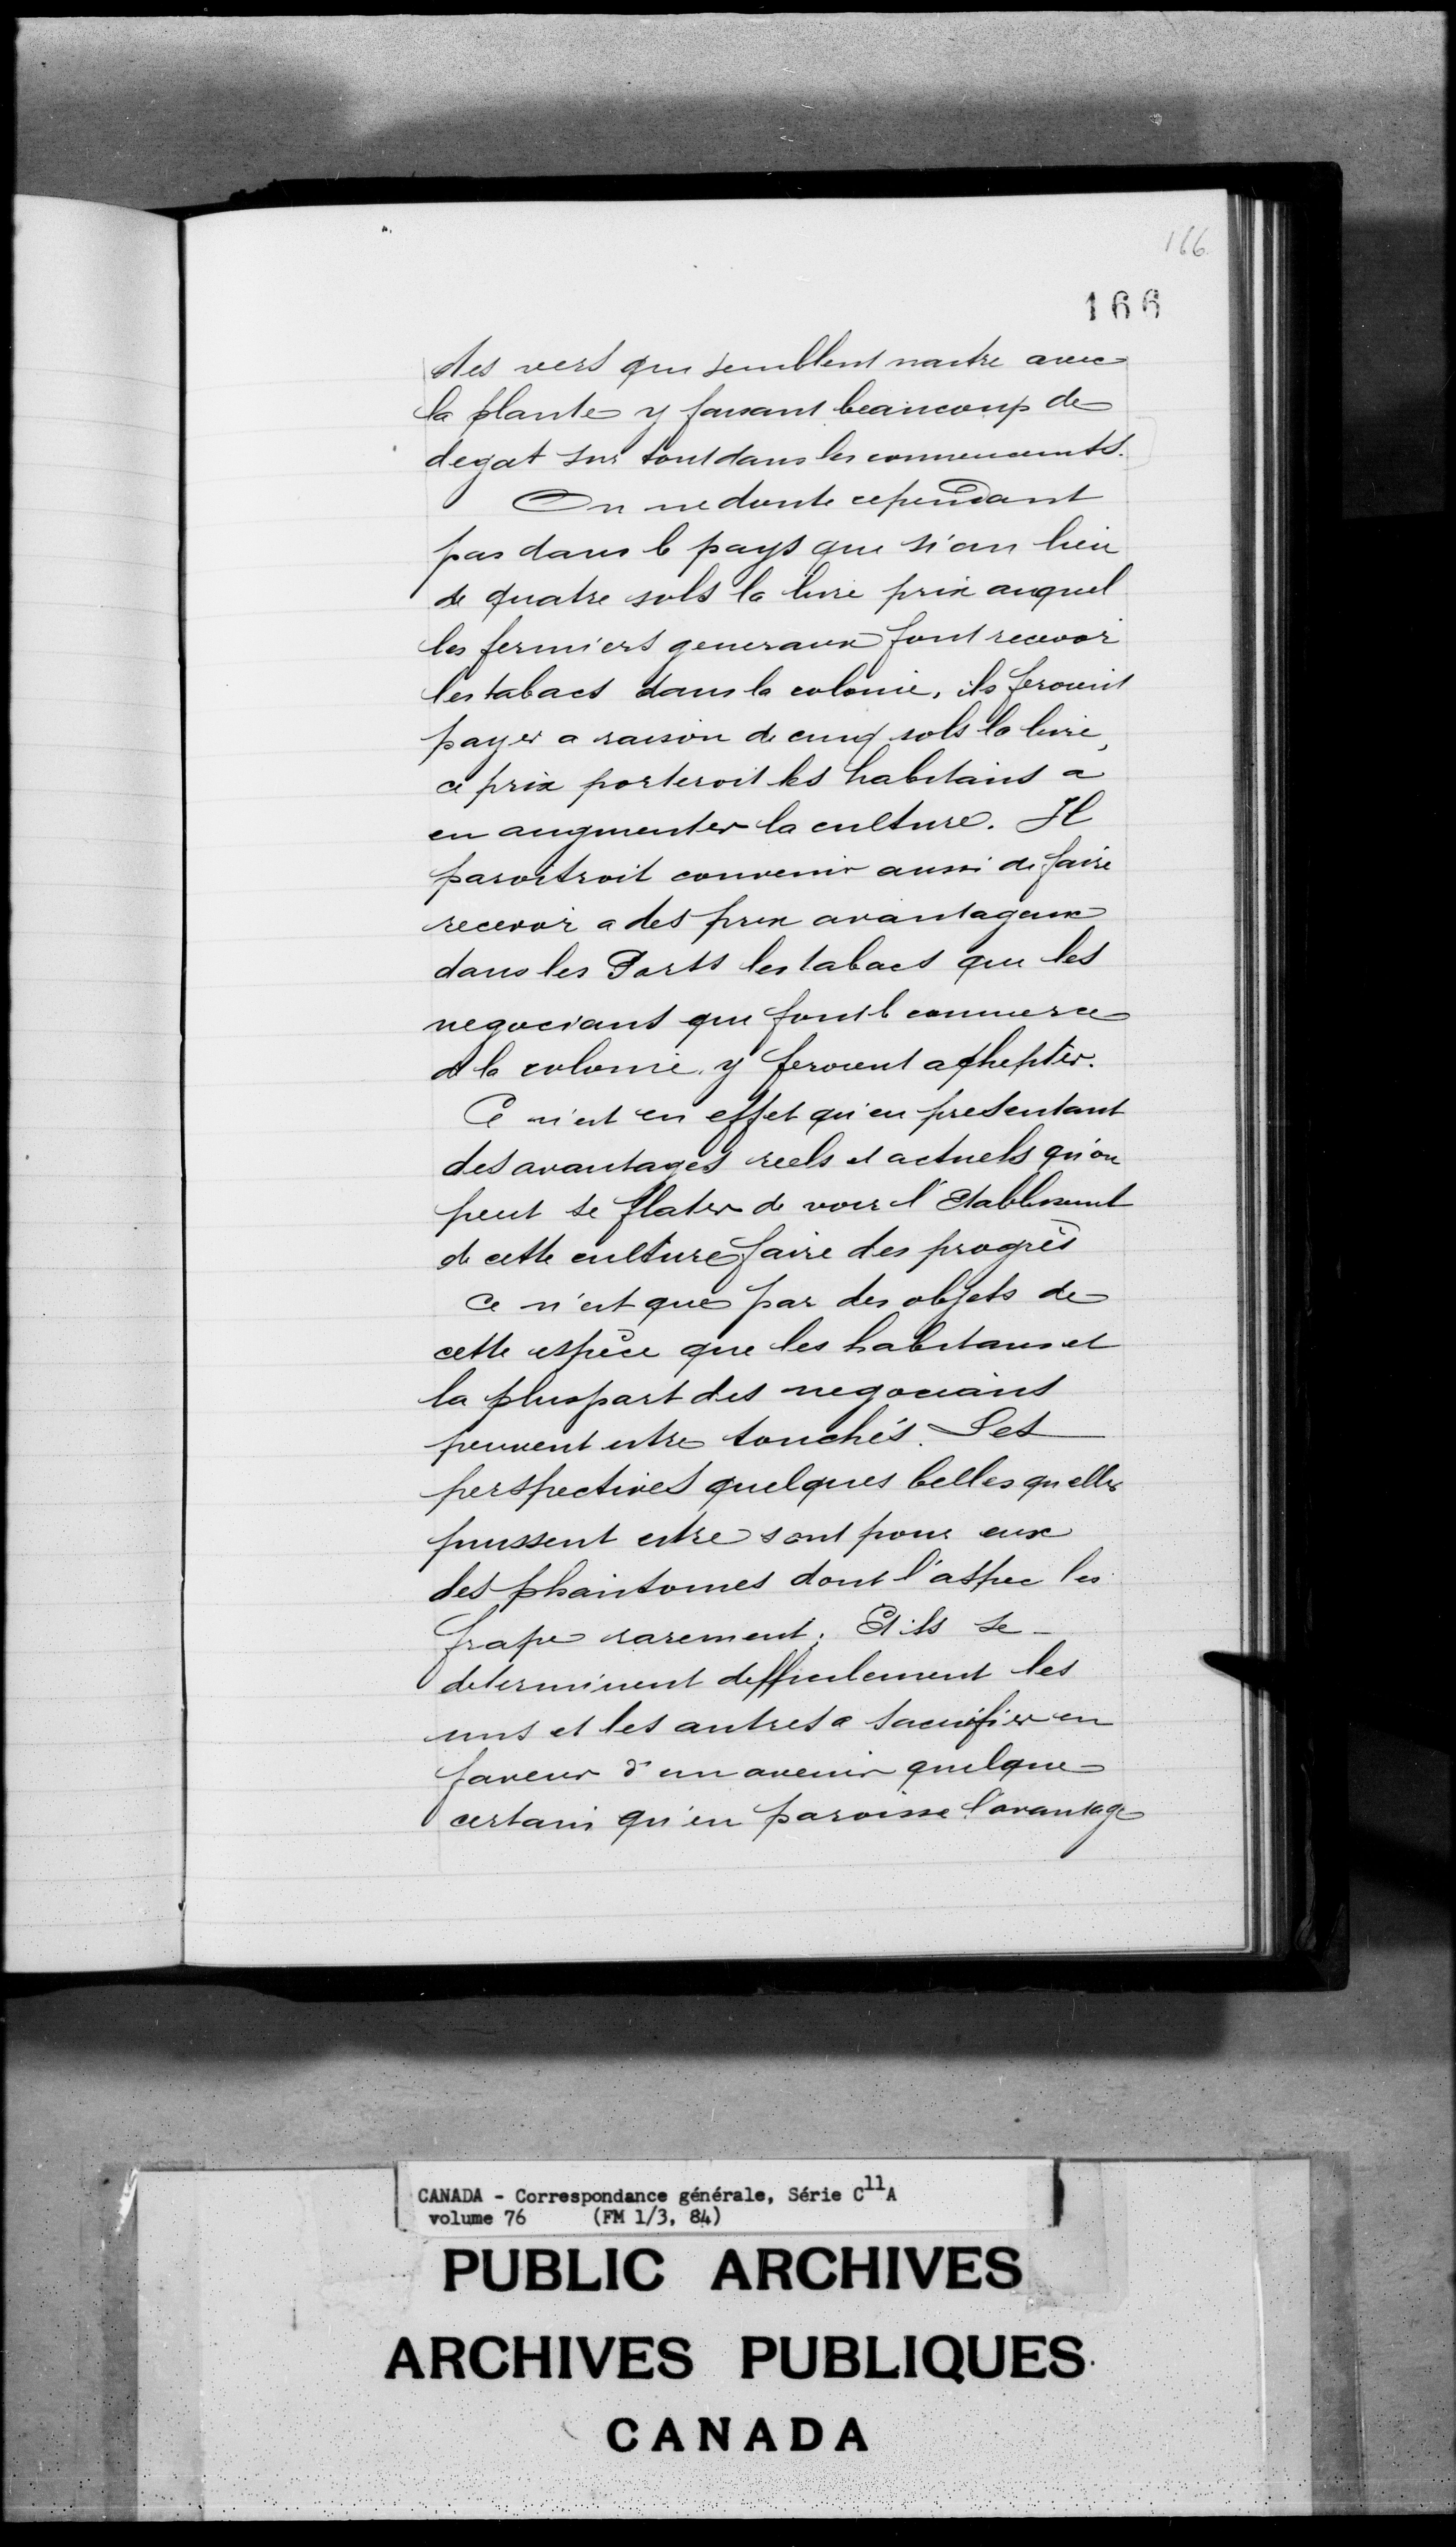 166
166
des vers qui semblent naitre avec
la plante y faisant beaucoup de
degat sur tout dans les commencemts.
On ne doute cependant
pas dans le pays que si au lieu
de quatre sols la livre prix auquel
les fermiers generaux font recevoir
les tabacs dans la colonie, ils feroient
payer a raison de cinq sols la livre,
ce prix porteroit les habitans a
en augmenter la culture. Il
paroitroit convenir aussi de faire
recevoir a des prix avantageux
dans les Ports les tabacs que les
negocians qui font le commerce
de la colonie, y feroient achepter.
Ce n'est en effet qu'en presentant
des avantages reels et actuels qu'on
peut se flater de voir l'Etablissement
de cette culture faire des progrès
Ce n'est que par des objets de
cette espèce que les habitans et
la pluspart des negocians
peuvent estre touchés. Les
perspectives quelques belles qu'elles
puissent estre sont pour eux
des phantomes dont l'aspec les
frape rarement; Et ils se
determinent difficilement les
uns et les autres a sacrifier en
faveur d'un avenir quelque
certain qu'en paroisse l'avantage
CANADA - Correspondance générale, Série C11A
volume 76 (FM 1/3, 84)
PUBLIC ARCHIVES
ARCHIVES PUBLIQUES
CANADA